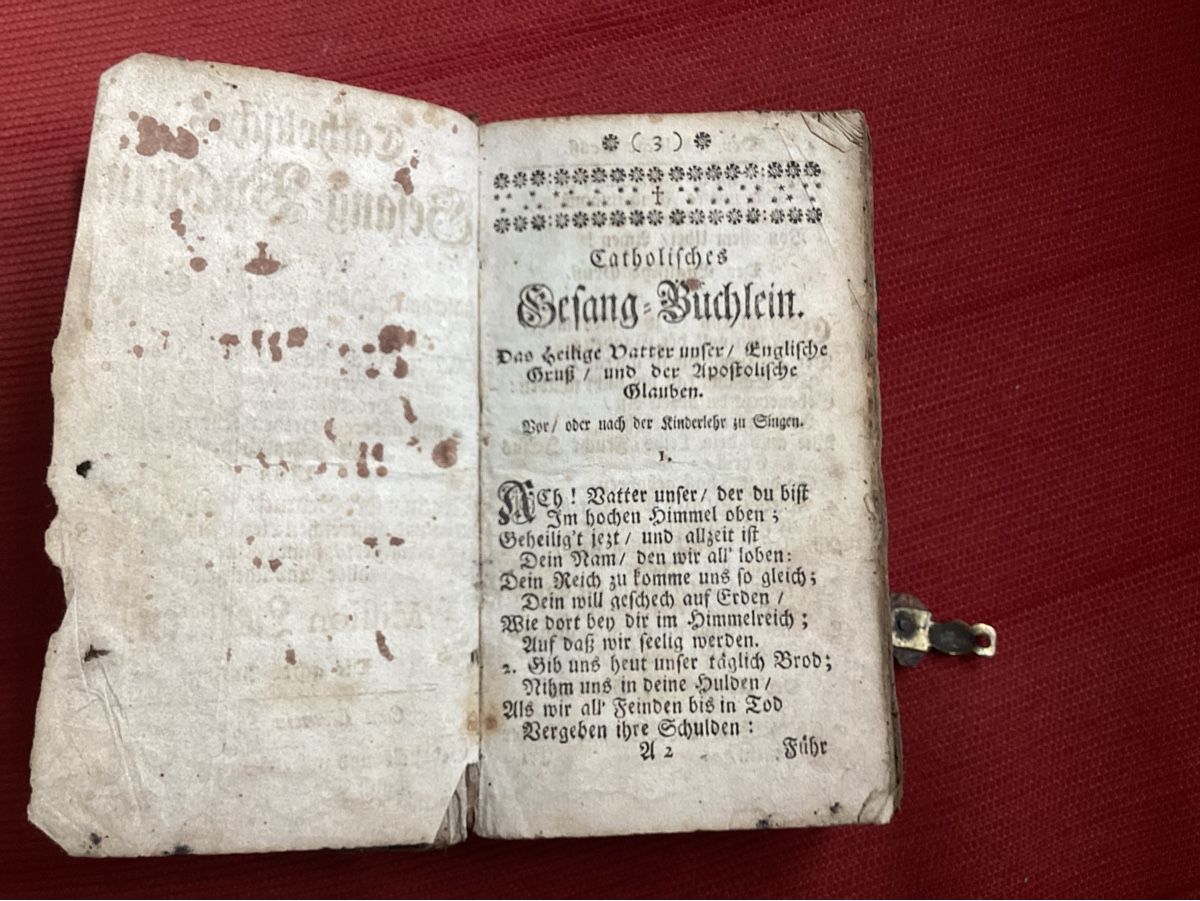 ( 3 )
Catholisches
Gesang-Büchlein.
Das Heilige Vatter unser/ Englische
Gruß / und der Apostolische
Glauben.
Vor/ oder nach der Kinderlehr zu Singen.
1.
ACh! Vatter unser/ der du bist
Im hochen Himmel oben;
Geheilig't jezt/ und allzeit ist
Dein Nam/ den wir all' loben:
Dein Reich zu komme uns so gleich;
Dein will geschech auf Erden /
Wie dort bey dir im Himmelreich;
Auf daß wir seelig werden.
2. Gib uns heut unser täglich Brod;
Nihm uns in deine Hulden/
Als wir all' Feinden bis in Tod
Vergeben ihre Schulden:
A 2 Führ